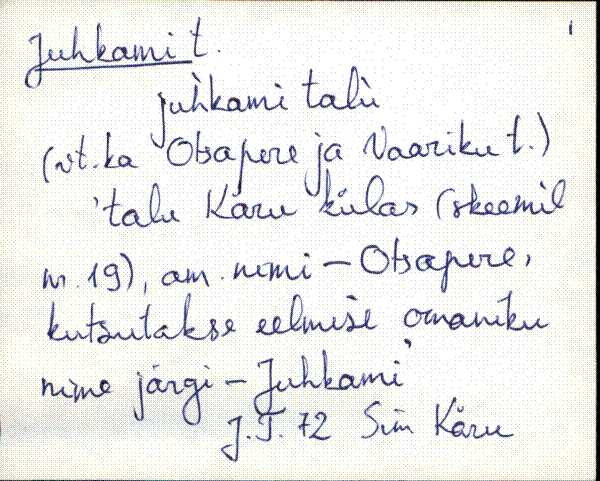 Juhkami t.
juhkami talù
(vt. ka Otsapere ja Vaariku t.)
'talu Käru külas (skeemil
nr. 19), am. nimi – Otsapere,
kutsutakse eelmise omaniku
nime järgi – Juhkami'
J.T. 72 Sim Käru